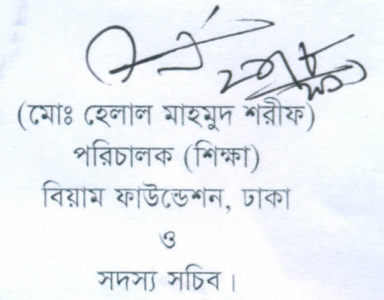 (মোঃ হেলাল মাহমুদ শরীফ)
পরিচালক (শিক্ষা)
বিয়াম ফাউন্ডেশন, ঢাকা
ও
সদস্য সচিব।